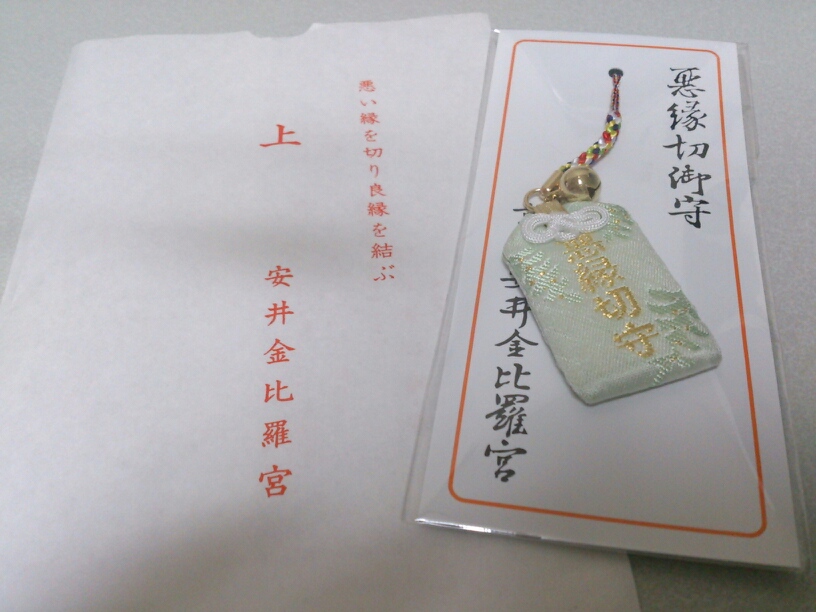 悪い縁を切り良縁を結ぶ
上
安井金比羅宮
悪縁切御守
井金比羅宮
悪縁切守